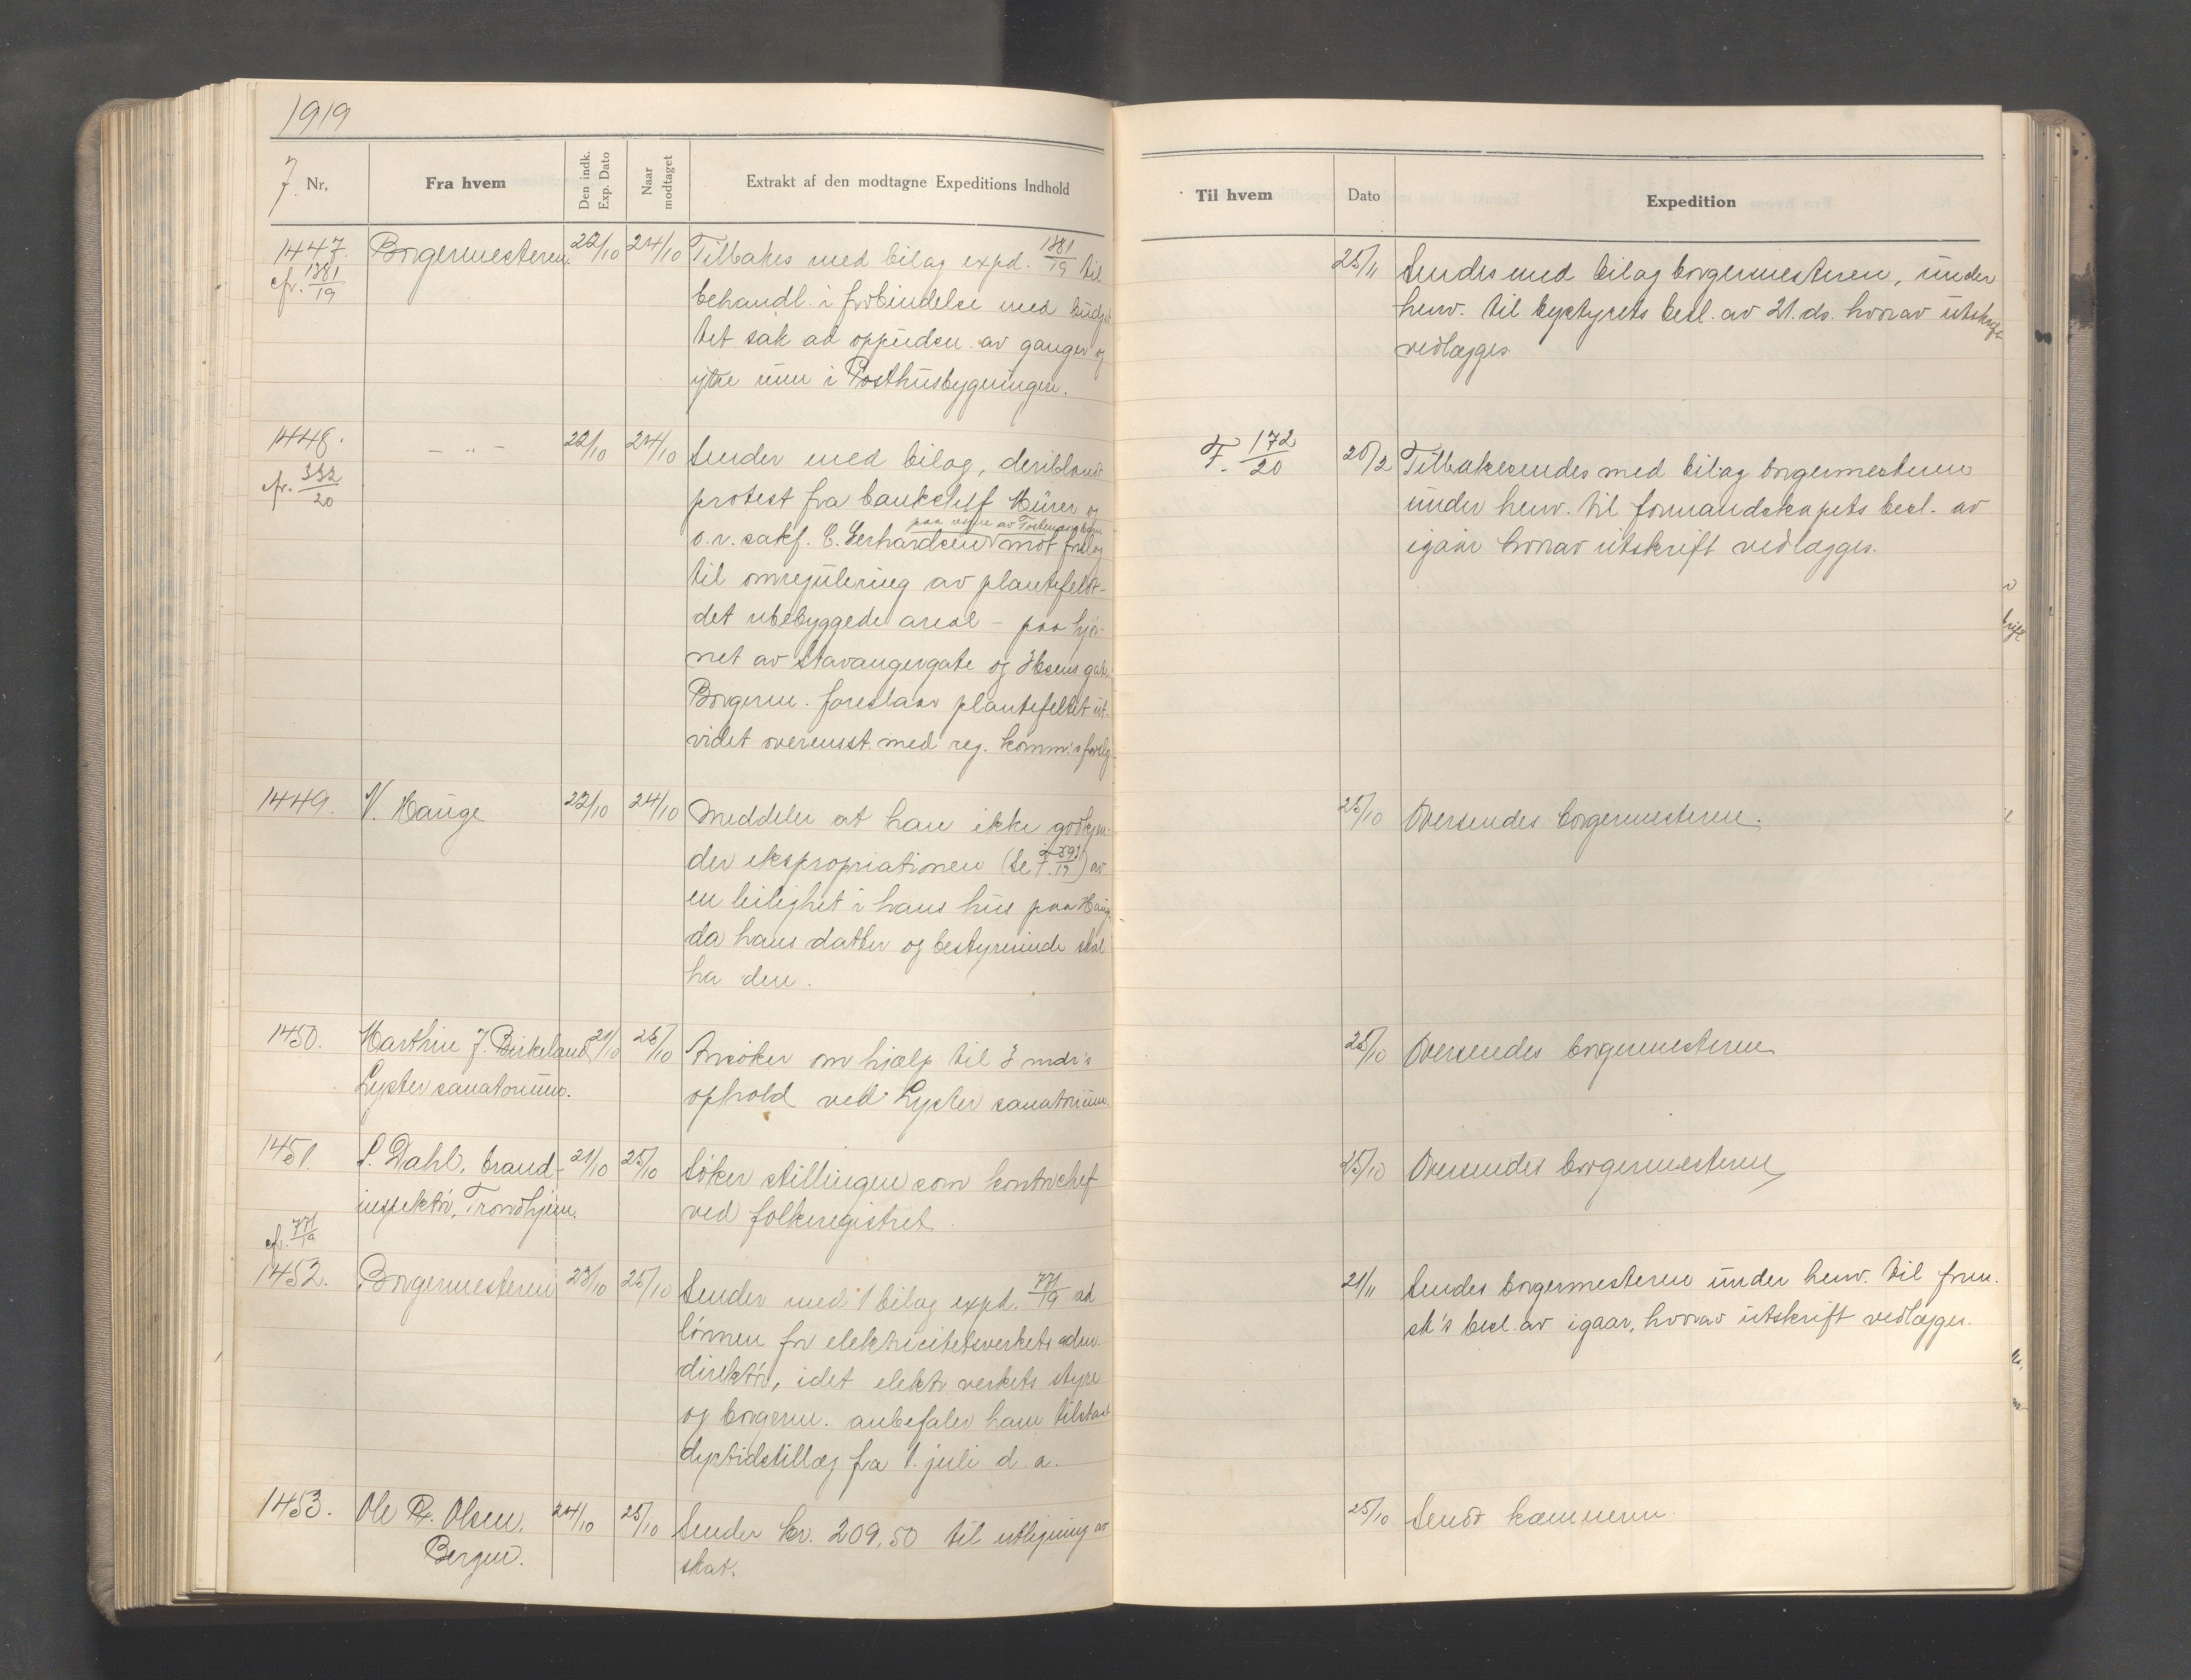 1919
J. Nr.
Fra hvem
Den indk. Exp. Dato
Naar modtaget
Extrakt af den modtagne Expeditions Indhold
Til hvem
Dato
Expedition
1447. Borgermesteren. 22/10 24/10 Tilbakes med bilag expd. 1381/19 til
cfr. 1381/19
behandl. i forbindelse med budget
tet sak ad oppudsn. av ganger og
ytre rum i Posthusbygningen.
25/11 Sendes med bilag borgermesteren, under
henv. til bystyrets besl. av 21. ds. hvorav utskrift
vedlægges
1448. — „ — 22/10 24/10 Sender med bilag, deriblandt
cfr. 332/20
protest fra bankchef Hürer og
paa vegne av
o.r. sakf. C. Gerhardsen mot forslag
til omregulering av plantefelt-
det ubebyggede areal – paa hjør-
net av Stavangergate og Ibsens gate
Borgerm. foreslaar plantefeltet ut-
videt overensst. med reg. komm.'s forslg.
F. 172/20 20/2 Tilbakesendes med bilag borgermesteren
under henv. til formandskapets besl. av
igaar hvorav utskrift vedlægges.
1449. V. Hauge 22/10 24/10 Meddeler at han ikke godkjen-
der ekspropriationen (Se av
en leilighet i hans hus paa Haug.
da hans datter og bestyrerinde skal
ha den.
25/10 Oversendes borgermesteren.
1450. Marthin J. Birkeland 21/10 25/10 Ansøker om hjælp til 3 mdr's
Lyster sanatorium.
ophold ved Lyster sanatorium.
25/10 Oversendes borgermesteren
1451. S. Dahl, brand- 21/10 25/10 Søker stillingen som kontorchef
inspektør, Trondhjem.
ved folkeregistret.
25/10 Oversendes borgermesteren
cfr. 771/19
1452. Borgermesteren 23/10 25/10 Sender med 1 bilag expd. 771/19 ad
lønnen for elektricitetsverkets adm.
direktør, idet elektr verkets styre
og borgerm. anbefaler ham tilstaat
dyrtidstillæg fra 1. juli d. a.
21/11 Sendes borgermesteren under henv. til form.
sk's besl. av igaar, hvorav utskrift vedlægges.
1453. Ole R. Olsen, 24/10 25/10 Sender kr. 209,50 til utligning av
Bergen.
skat.
25/10 Sendt kæmneren.